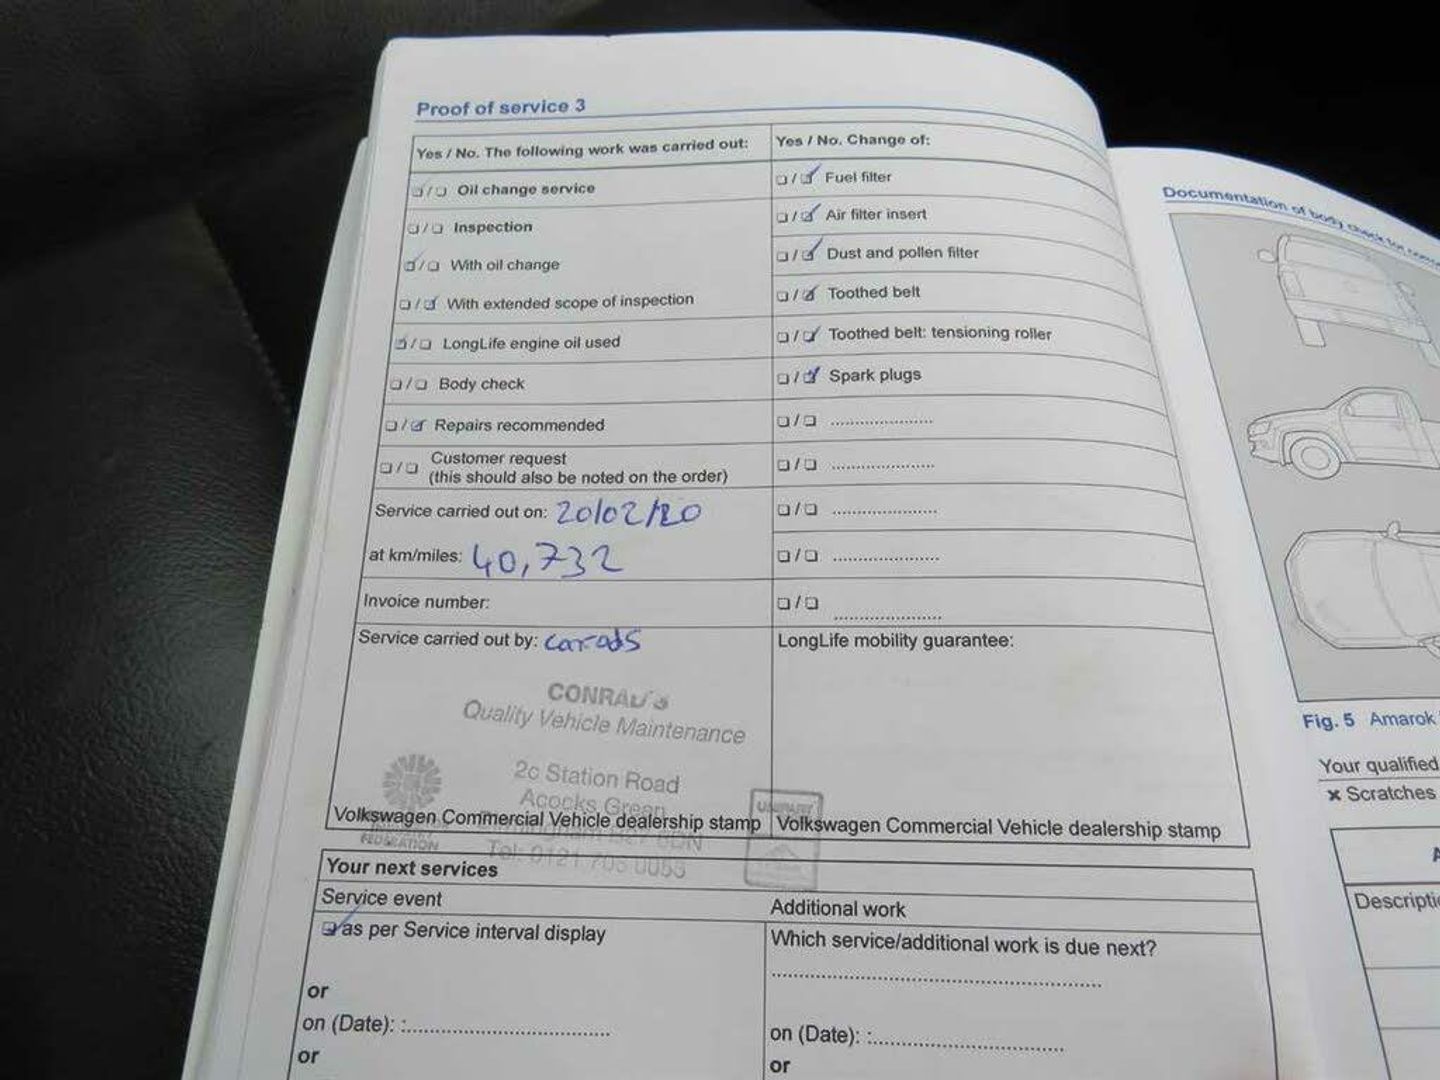 Proof of service 3
Yes / No. The following work was carried out:
☐/☐ Oil change service
☐/☐ Inspection
☑/☐ With oil change
☐/☑ With extended scope of inspection
☑/☐ LongLife engine oil used
☐/☐ Body check
☐/☑ Repairs recommended
☐/☐ Customer request
(this should also be noted on the order)
Service carried out on: 20/02/20
at km/miles: 40,732
Invoice number:
Service carried out by:
CONRAD'S
Quality Vehicle Maintenance
2c Station Road
Acocks Green
Volkswagen Commercial Vehicle dealership stamp
FEDERATION
Tel: 0121
Yes / No. Change of:
☐/☑ Fuel filter
☐/☑ Air filter insert
☐/☑ Dust and pollen filter
☐/☑ Toothed belt
☐/☑ Toothed belt: tensioning roller
☐/☑ Spark plugs
☐/☐ ......................
☐/☐ ......................
☐/☐ ......................
☐/☐ ......................
☐/☐ ......................
LongLife mobility guarantee:
UNIPART
Volkswagen Commercial Vehicle dealership stamp
Your next services
Service event
☑ as per Service interval display
or
on (Date): :..................................
or
Additional work
Which service/additional work is due next?
......................................................
on (Date): :................................
or
Documentation of body check for
Fig. 5 Amarok
Your qualified
× Scratches